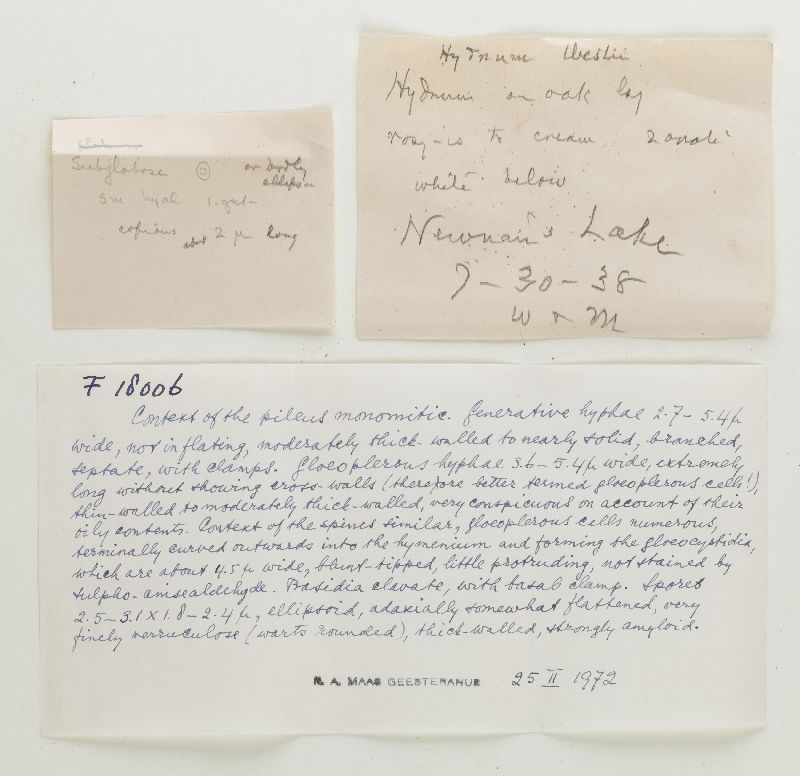 Subglobose or broadly
ellipsoid
5m hyal 1-gut-
copious about 2 µ long
Hydnum Westii
Hydnum on oak log
rosy-is to cream zonate
white below
Newnan's Lake
7-30-38
W & M
F 18006
Context of the pileus monomitic. Generative hyphae 2.7-5.4 µ
wide, not inflating, moderately thick-walled to nearly solid, branched,
septate, with clamps. Gloeoplerous hyphae 3.6-5.4 µ wide, extremely
long without showing cross-walls (therefore better termed gloeoplerous cells!),
thin-walled to moderately thick-walled, very conspicuous on account of their
oily contents. Context of the spines similar, gloeoplerous cells numerous,
terminally curved outwards into the hymenium and forming the gloeocystidia,
which are about 4.5 µ wide, blunt-tipped, little protruding, not stained by
sulpho-anisealdehyde. Basidia clavate, with basal clamp. Spores
2.5-3.1 x 1.8-2.4 µ, ellipsoid, adaxially somewhat flattened, very
finely verruculose (warts rounded), thick-walled, strongly amyloid.
R. A. MAAS GEESTERANUS 25 II 1972